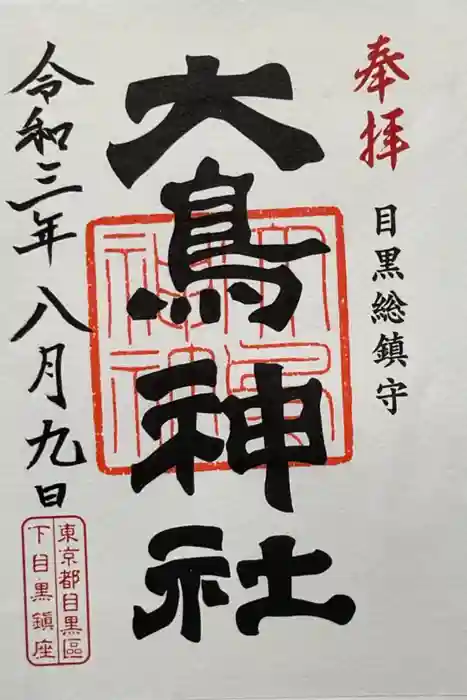 奉拝
目黒総鎮守
大鳥神社
大鳥
神社
令和三年八月九日
東京都目黒區
下目黒鎮座